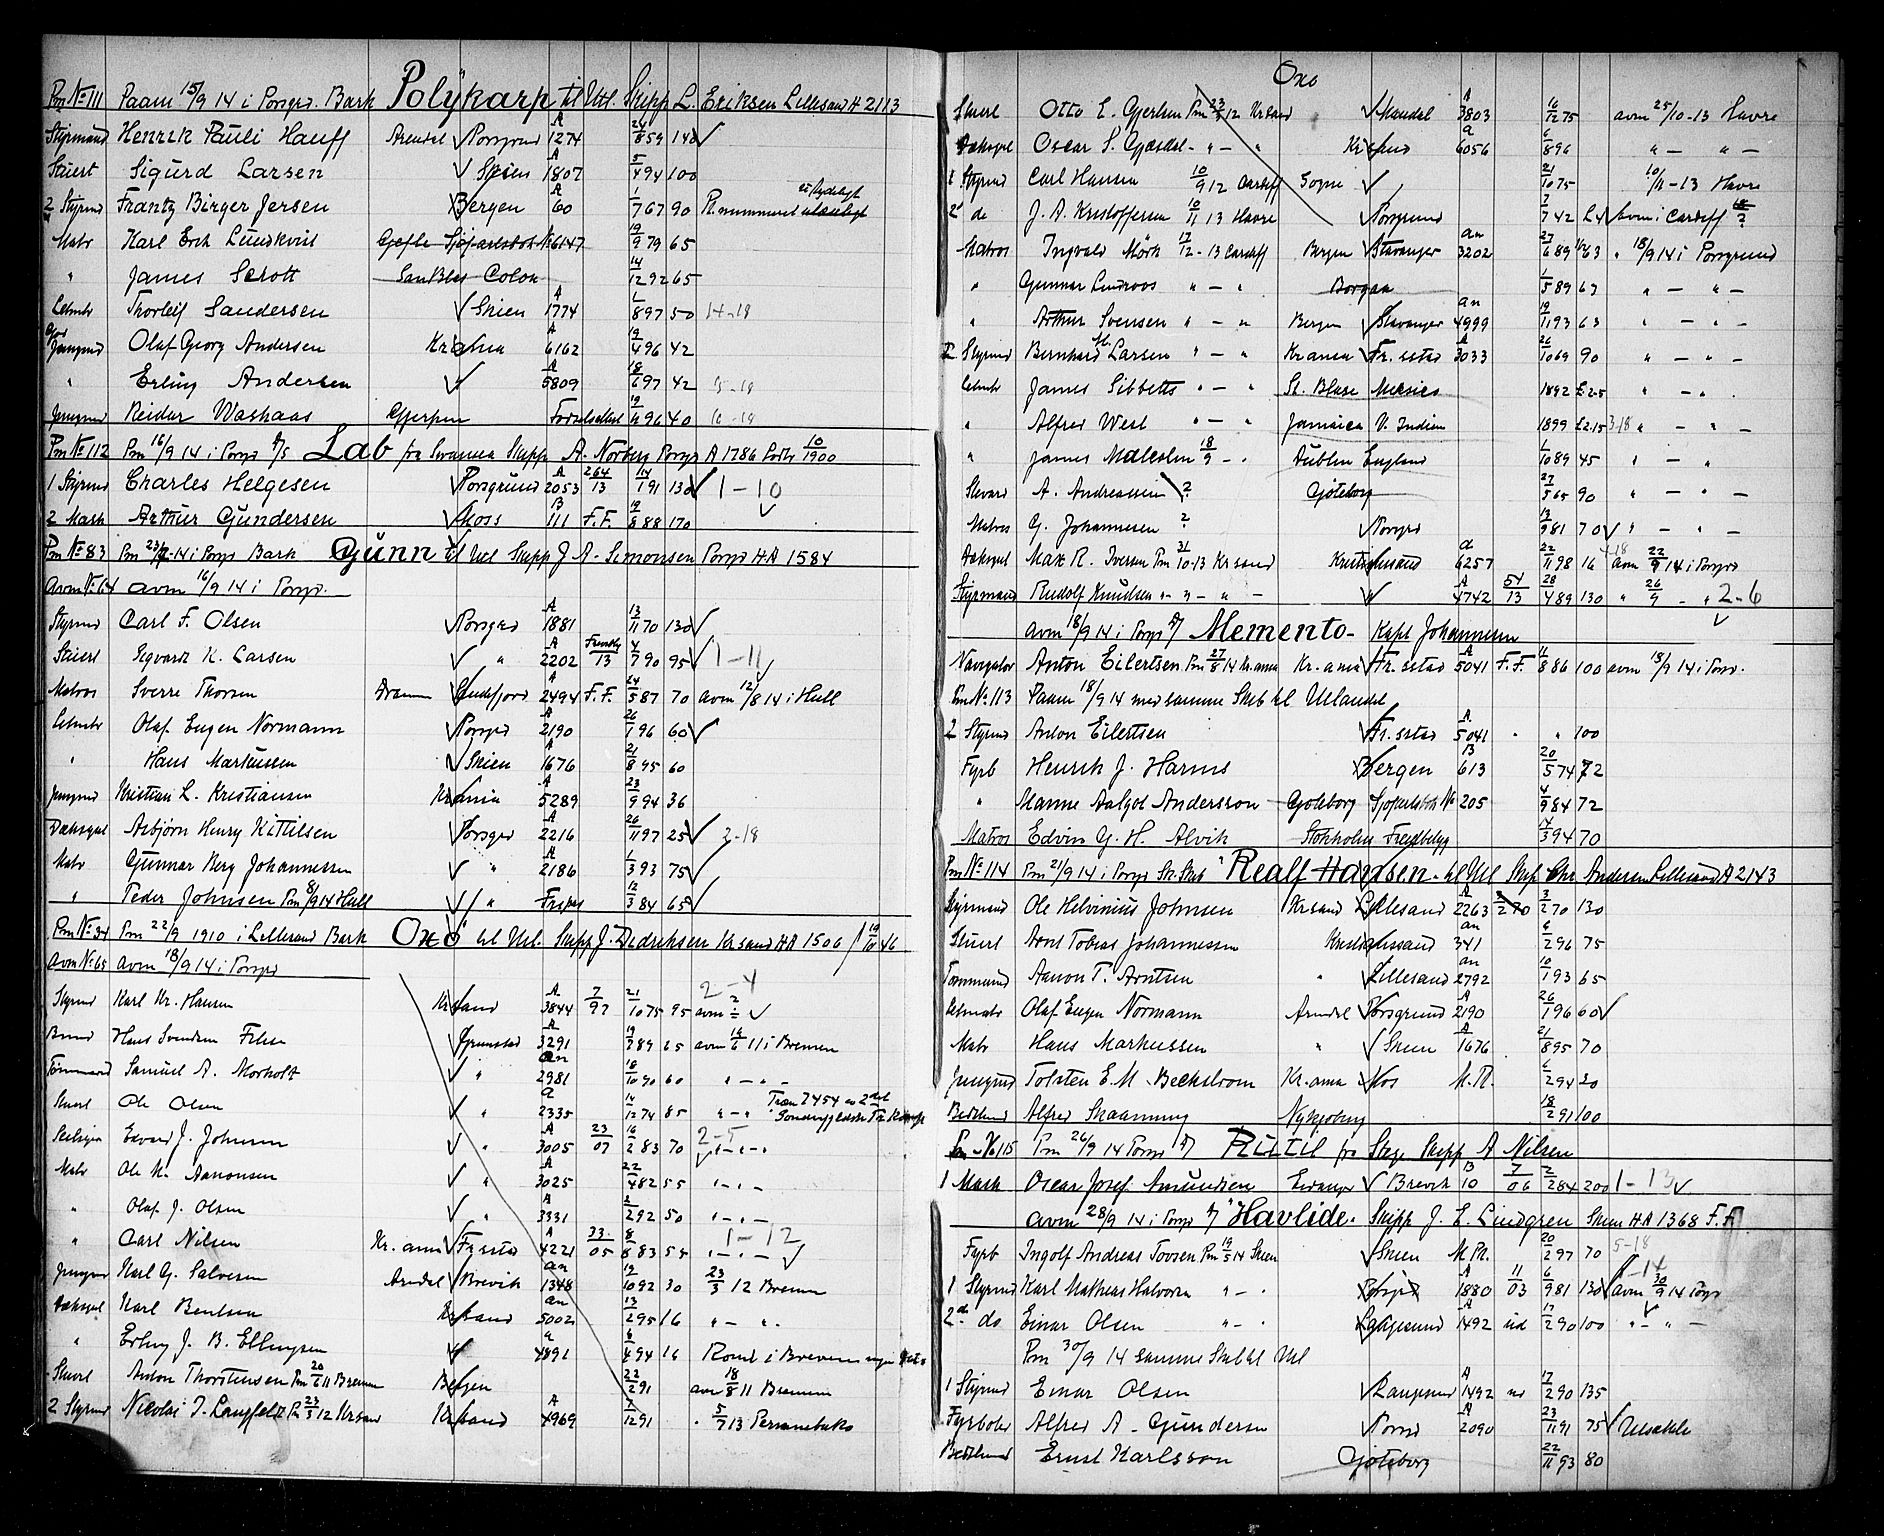 Pm No 111 Paam 15/9 14 i Porsgr. Bark Polykarp til Utl. Skipp L. Eriksen Lillesand A 2113
Styrmand Henrik Pauli Hauff Arendel Porsgrund A 1274 24/8 59 140
Stuert Sigurd Larsen Skien A 1807 5/4 94 100
2 Styrmd Frantz Birger Jersen Bergen A 60 1/7 67 90
Matr Karl Erik Lundkvist Gefle Sjöfartsbok No 6147 19/9 79 65
" James Scrott San Blas Colon 14/12 92 65
Letmtr Thorleif Sandersen Skien A 1774 1/8 97 50 14-18
Jungmd Olaf Georg Andersen Kr.ania A 6162 19/4 96 42
" Erling Andersen A 5809 18/6 97 42 15-18
Jungmd Reidar Washaas Gjerpen 96 40 16-18
Pm No 112 Pm 16/9 14 i Porsgr D/S Lab fra Svansea Skipp A. Norberg Porsgr A 1786 10/1900
1 Styrmd Charles Helgesen Porsgrund A 2053 264/13 14/1 91 130 1-10
2 Mask Arthur Gundersen Moss B 111 F.F. 19/8 88 170
Pm No 83 Pm 14 i Porsgr Bark Gunn til Utl Skipp J A. Simonsen Porsgr HA 1584
Avm No 64 avm 16/9 14 i Porsgr.
Styrmd Carl F. Olsen Porsgrd A 1881 13/11 70 130
Stuert Sigvardt K. Larsen " A 2202 4/7 90 95 1-11
Matros Sverre Thorsen Drammen Sandefjord A 2494 F.F. 24/5 87 70 avm 12/8 14 i Hull
Letmtr Olaf Eugen Normann Porsgrd A 2190 26/1 96 60
" Hans Markussen Skien A 1676 21/8 95 60
Jungmd Kristian L. Kristiansen Kr.ania A 5289 23/9 94 36
Dæksgut Asbjørn Henry Kittilsen Porsgrd A 2216 26/11 97 25 2-18
Matr Gunnar Berg Johannessen " A 2186 1/3 93 75
" Peder Johnsen Pm 8/9 14 i Hull " 12/3 84 65
Pm No 34 Pm 22/9 1910 i Lillesand Bark Oxo til Utl. Skipp J. Didriksen Kr.sand HA 1506
Avm No 65 avm 18/9 14 i Porsgr
Styrmd Karl Kr. Hansen Kr.sand A 3844 7/97 21/10 75 95 avm ? 2-4
Hans Svendsen Grimstad A 3291 19/3 89 65 avm 14/6 11 i Bremen
Tømmermd Samuel A. Morholt " an 2981 18/10 90 60 " - " -
Stuert Ole Olsen " a 2335 14/12 74 85 " - "
Seilmager Edvard J. Johnsen " A 3005 23/07 16/2 83 70 2-5 " - " - "
Matr Ole K. Aanonsen " A 3025 22/4 82 55 " - " -
" Olaf J. Olsen " A 3331 2/2 92 50 " - " -
" Carl Nilsen Kr.ania Fr.stad A 4221 33/05 8/8 83 55 1-12 " - " -
Jungmd Karl G. Salvesen Arendel Brevik an 1348 19/10 92 30 23/3 12 Bremen
Dæksgut Karl Bentsen Kr.sand an 5002 13/2 95 16 " - " .
" Erling J. B. Ellingsen " a 4891 6/4 94 16 Rømt i Bremen
Stuert Anton Thorstensen Pm 20/6 11 Bremen Bergen 22/2 91 avm 18/8 11 Bremen
2 Styrmd Nicolai J. Langfeldt Pm 23/3 12 Kr.sand Kr.sand A 4969 7/12 91 " 5/7 13 Pernambuko
Oxo
Stuert Otto E. Gjertsen Pm 23/3 12 Kr.sand Mandal A 3803 16/12 75 avm 25/10-13 Havre
Dæksgut Oscar S. Gjæsdal " - " Kr.sand a 6056 6/8 96 " - " -
1 Styrmd Carl Hansen 10/9 12 Cardiff Sogne 21/10 75 10/11-13 Havre
2d do J. A. Kristoffersen 10/11 13 Havre Porsgrund 7/7 42 £4 avm i Cardiff ?
Matros Ingvald Mörk 17/12-13 Cardiff Bergen Stavanger an 3202 27/6 89 63 " 18/9 14 i Porsgrund
" Gunnar Lindroos " - " Borgaa 1/5 89 63 " - " -
" Arthur Svensen " - " Bergen Stavanger an 4999 19/11 93 63 " - " -
2 Styrmd Bernhard M. Larsen " - " Kr.ania Fr.stad A 3033 26/10 69 90 " - " -
Letmtr James Sibbetts " - " St. Blase Mexico 1892 £2.5 " - " .
" Alfred West " - " Jamaica V. Indien 1899 £2.15 3-18 " - " -
" James Malcolm 18/9 - " Dublin England 1/10 89 45 " - "
Steward A. Andreassen ? Göteborg 27/5 65 90 " - " -
Matros G. Johannesen ? Porsgrd 13/9 81 70 " - " -
Dæksgut Max R. Iversen Pm 31/10-13 Kr.sand Kristiansand a 6257 22/11 98 16 4-18 avm 22/9 14 i Porsgrd
Styrmand Rudolf Knudsen " - " - A 4742 54/13 28/4 89 130 " 26/9 - " 2-6
avm 18/9 14 i Porsgr D/S Memento - Kapt Johannesen
Navigatør Anton Eilertsen Pm 27/8 14 Kr.ania Kr.ania Fr.stad A 5041 F.F. 11/8 86 100 avm 18/9 14 i Porsgr.
Pm No 113 Paam 18/9 14 med samme Skib til Utlandet
2 Styrmd Anton Eilertsen Fr.stad A 5041 " " 100
Fyrb Henrik J. Harms Bergen B 613 20/5 74 72
" Manne Aalgot Andersson Göteborg Sjöfartsbok No 205 4/9 84 72
Matros Edvin G. H. Alvik Stokholm 14/3 94 70
Pm No 114 Pm 21/9 14 i Porsgr Sk.Skib "Realf Hansen" til Utl Skip Chr Andersen Lillesand A 2143
Styrmand Ole Helvinius Johnsen Kr.sand Lillesand A 2263 270 3/2 70 130
Stuert Arnt Tobias Johannessen Kristiansand an 341 6/2 96 75
Tømmermd Aanon T. Arntsen " Lillesand an 2792 10/1 93 65
Letmatr Olaf Eugen Normann Arendel Porsgrund A 2190 26/1 96 60
Matr Hans Markussen " Skien A 1676 21/8 95 70
Jungmd Tolsten E. M. Beckstrom Kr.ania Mos M.R. 6/2 94 30
Bedstmd Alfred Skaanning Nykjøbing 18/2 91 100
Pm No 115 Pm 26/9 14 Porsgr D/S Pittil fra Stege Skipp A Nilsen
1 Mask Oscar Josef Amundsen Eidanger Brevik B 10 7/06 2/2 84 200 1-13
avm 28/9 14 i Porsgr D/S "Havlide" Skipp J. E. Lindgren Skien HA 1368 F.F
Fyrb Ingolf Andreas Tovsen Pm 19/5 14 Skien Skien M.R. 20/2 97 70 5-18
1 Styrmd Karl Mathias Halvorsen " - " Porsgrd A 1880 11/03 6/9 81 130 1-14 avm 30/9 14 Porsgr
2d do Einar Olsen " - " Langesund A 1492 ud 17/2 90 100 " - " -
Pm 30/9 14 samme Skib til Utl
1 Styrmd Einar Olsen Langesund A 1492 ud 17/2 90 135
Fyrbøter Alfred A. Gundersen Porsgrd A 2090 23/11 91 75 Uteblv
Bedstmd Ernst Karlsson Göteborg 22/11 93 80